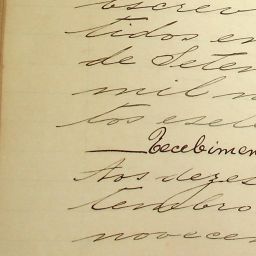 escrev
tidos em
de Setem
mil n
tos e sete
Recebimen
Aos dezes
tembro
novecen